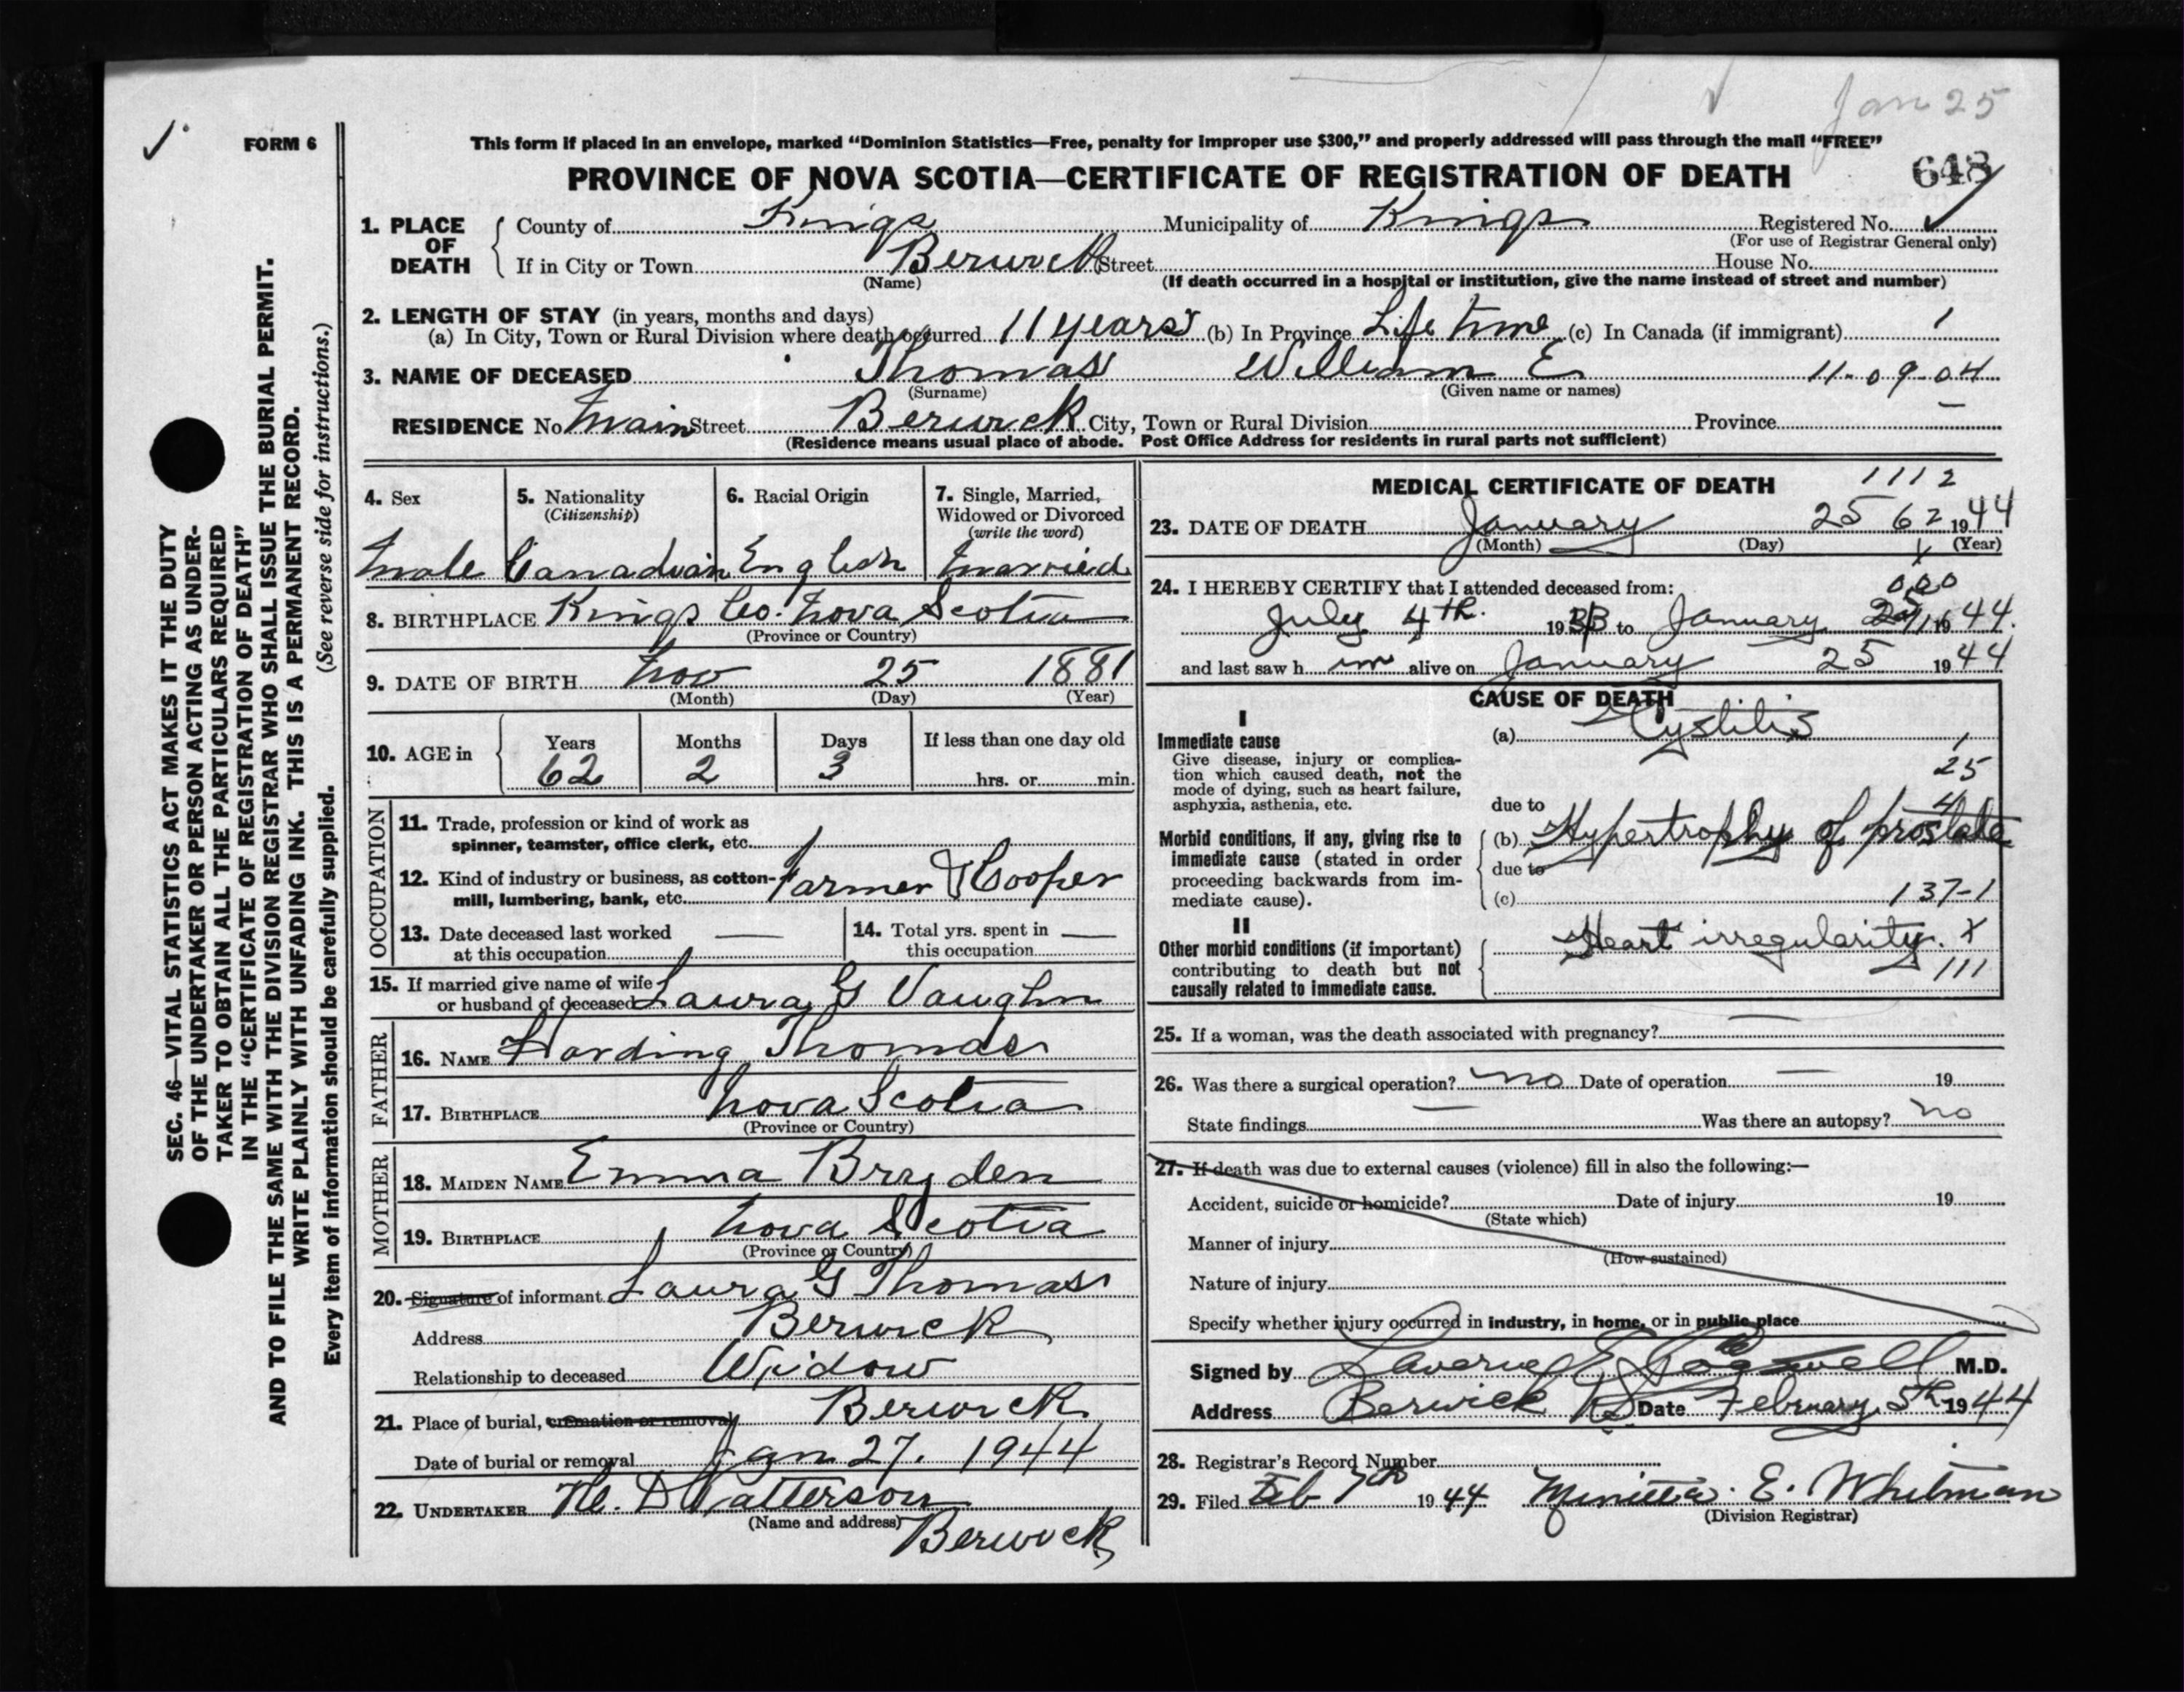 Jan 25
FORM 6
This form if placed in an envelope, marked “Dominion Statistics—Free, penalty for improper use $300,” and properly addressed will pass through the mail “FREE”
PROVINCE OF NOVA SCOTIA—CERTIFICATE OF REGISTRATION OF DEATH
648
SEC. 46—VITAL STATISTICS ACT MAKES IT THE DUTY
OF THE UNDERTAKER OR PERSON ACTING AS UNDER-
TAKER TO OBTAIN ALL THE PARTICULARS REQUIRED
IN THE “CERTIFICATE OF REGISTRATION OF DEATH”
AND TO FILE THE SAME WITH THE DIVISION REGISTRAR WHO SHALL ISSUE THE BURIAL PERMIT.
WRITE PLAINLY WITH UNFADING INK. THIS IS A PERMANENT RECORD.
(See reverse side for instructions.)
Every item of information should be carefully supplied.
1. PLACE OF DEATH
County of Kings Municipality of Kings Registered No.
(For use of Registrar General only)
If in City or Town Berwick Street House No.
(Name) (If death occurred in a hospital or institution, give the name instead of street and number)
2. LENGTH OF STAY (in years, months and days)
(a) In City, Town or Rural Division where death occurred 11 years (b) In Province Life time (c) In Canada (if immigrant) 1
3. NAME OF DECEASED Thomas William E 11-09-04
(Surname) (Given name or names)
RESIDENCE No Main Street Berwick City, Town or Rural Division Province
(Residence means usual place of abode. Post Office Address for residents in rural parts not sufficient)
4. Sex 5. Nationality 6. Racial Origin 7. Single, Married,
(Citizenship) Widowed or Divorced
(write the word)
Male Canadian English Married
8. BIRTHPLACE Kings Co. Nova Scotia
(Province or Country)
9. DATE OF BIRTH Nov 25 1881
(Month) (Day) (Year)
10. AGE in Years Months Days If less than one day old
62 2 3 hrs. or min.
OCCUPATION
11. Trade, profession or kind of work as
spinner, teamster, office clerk, etc.
12. Kind of industry or business, as cotton-
mill, lumbering, bank, etc. Farmer & Cooper
13. Date deceased last worked — 14. Total yrs. spent in —
at this occupation this occupation
15. If married give name of wife
or husband of deceased Laura G Vaughn
FATHER
16. NAME Harding Thomas
17. BIRTHPLACE Nova Scotia
(Province or Country)
MOTHER
18. MAIDEN NAME Emma Bryden
19. BIRTHPLACE Nova Scotia
(Province or Country)
20. Signature of informant Laura G Thomas
Address Berwick
Relationship to deceased Widow
21. Place of burial, cremation or removal Berwick
Date of burial or removal Jan 27. 1944
22. UNDERTAKER Patterson
(Name and address) Berwick
MEDICAL CERTIFICATE OF DEATH 1112
23. DATE OF DEATH January 25 62 1944
(Month) (Day) (Year)
24. I HEREBY CERTIFY that I attended deceased from: 000
July 4th. 1933 to January 1944.
and last saw him alive on January 25 1944
CAUSE OF DEATH
I
Immediate cause (a) Cystitis
Give disease, injury or complica-
tion which caused death, not the
mode of dying, such as heart failure,
asphyxia, asthenia, etc. due to
25
Morbid conditions, if any, giving rise to (b) Hypertrophy of prostate
immediate cause (stated in order due to
proceeding backwards from im-
mediate cause). (c) 137-1
II
Other morbid conditions (if important) Heart irregularity. x
contributing to death but not 111
causally related to immediate cause.
25. If a woman, was the death associated with pregnancy? —
26. Was there a surgical operation? no Date of operation — 19
State findings — Was there an autopsy? no
27. If death was due to external causes (violence) fill in also the following:—
Accident, suicide or homicide? Date of injury 19
(State which)
Manner of injury
(How sustained)
Nature of injury
Specify whether injury occurred in industry, in home, or in public place
Signed by Laverne E Cogswell M.D.
Address Berwick Date February 5th 1944
28. Registrar's Record Number
29. Filed Feb 7th 1944 E. Whitman
(Division Registrar)